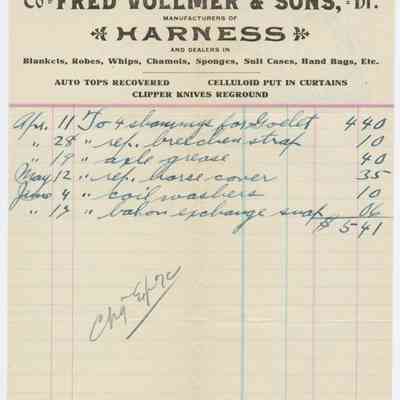 To FRED VOLLMER & SONS, Dr.
MANUFACTURERS OF
HARNESS
AND DEALERS IN
Blankets, Robes, Whips, Chamois, Sponges, Suit Cases, Hand Bags, Etc.
AUTO TOPS RECOVERED CELLULOID PUT IN CURTAINS
CLIPPER KNIVES REGROUND
Apr. 11 To 4 for 4 40
" 28 " rep. breechen strap 10
" 19 " axle grease 40
May 12 " rep. horse cover 35
June 4 " coil washers 10
" 17 " exchange snap 06
$ 5 41
Chg